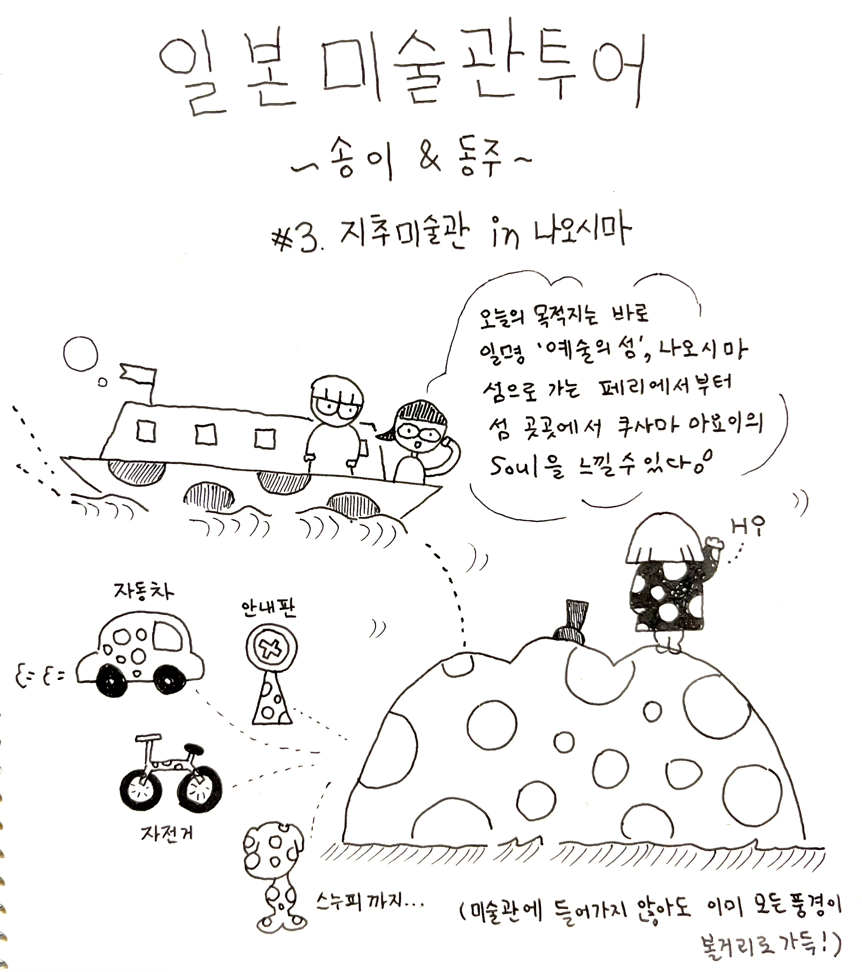 일본미술관투어
~송이 & 동주~
#3. 지추미술관 in 나오시마
오늘의 목적지는 바로
일명 '예술의 섬', 나오시마
섬으로 가는 페리에서부터
섬 곳곳에서 쿠사마 야요이의
Soul을 느낄 수 있다。
Hi
자동차
안내판
자전거
스누피 까지...
(미술관에 들어가지 않아도 이미 모든 풍경이
볼거리로 가득!)